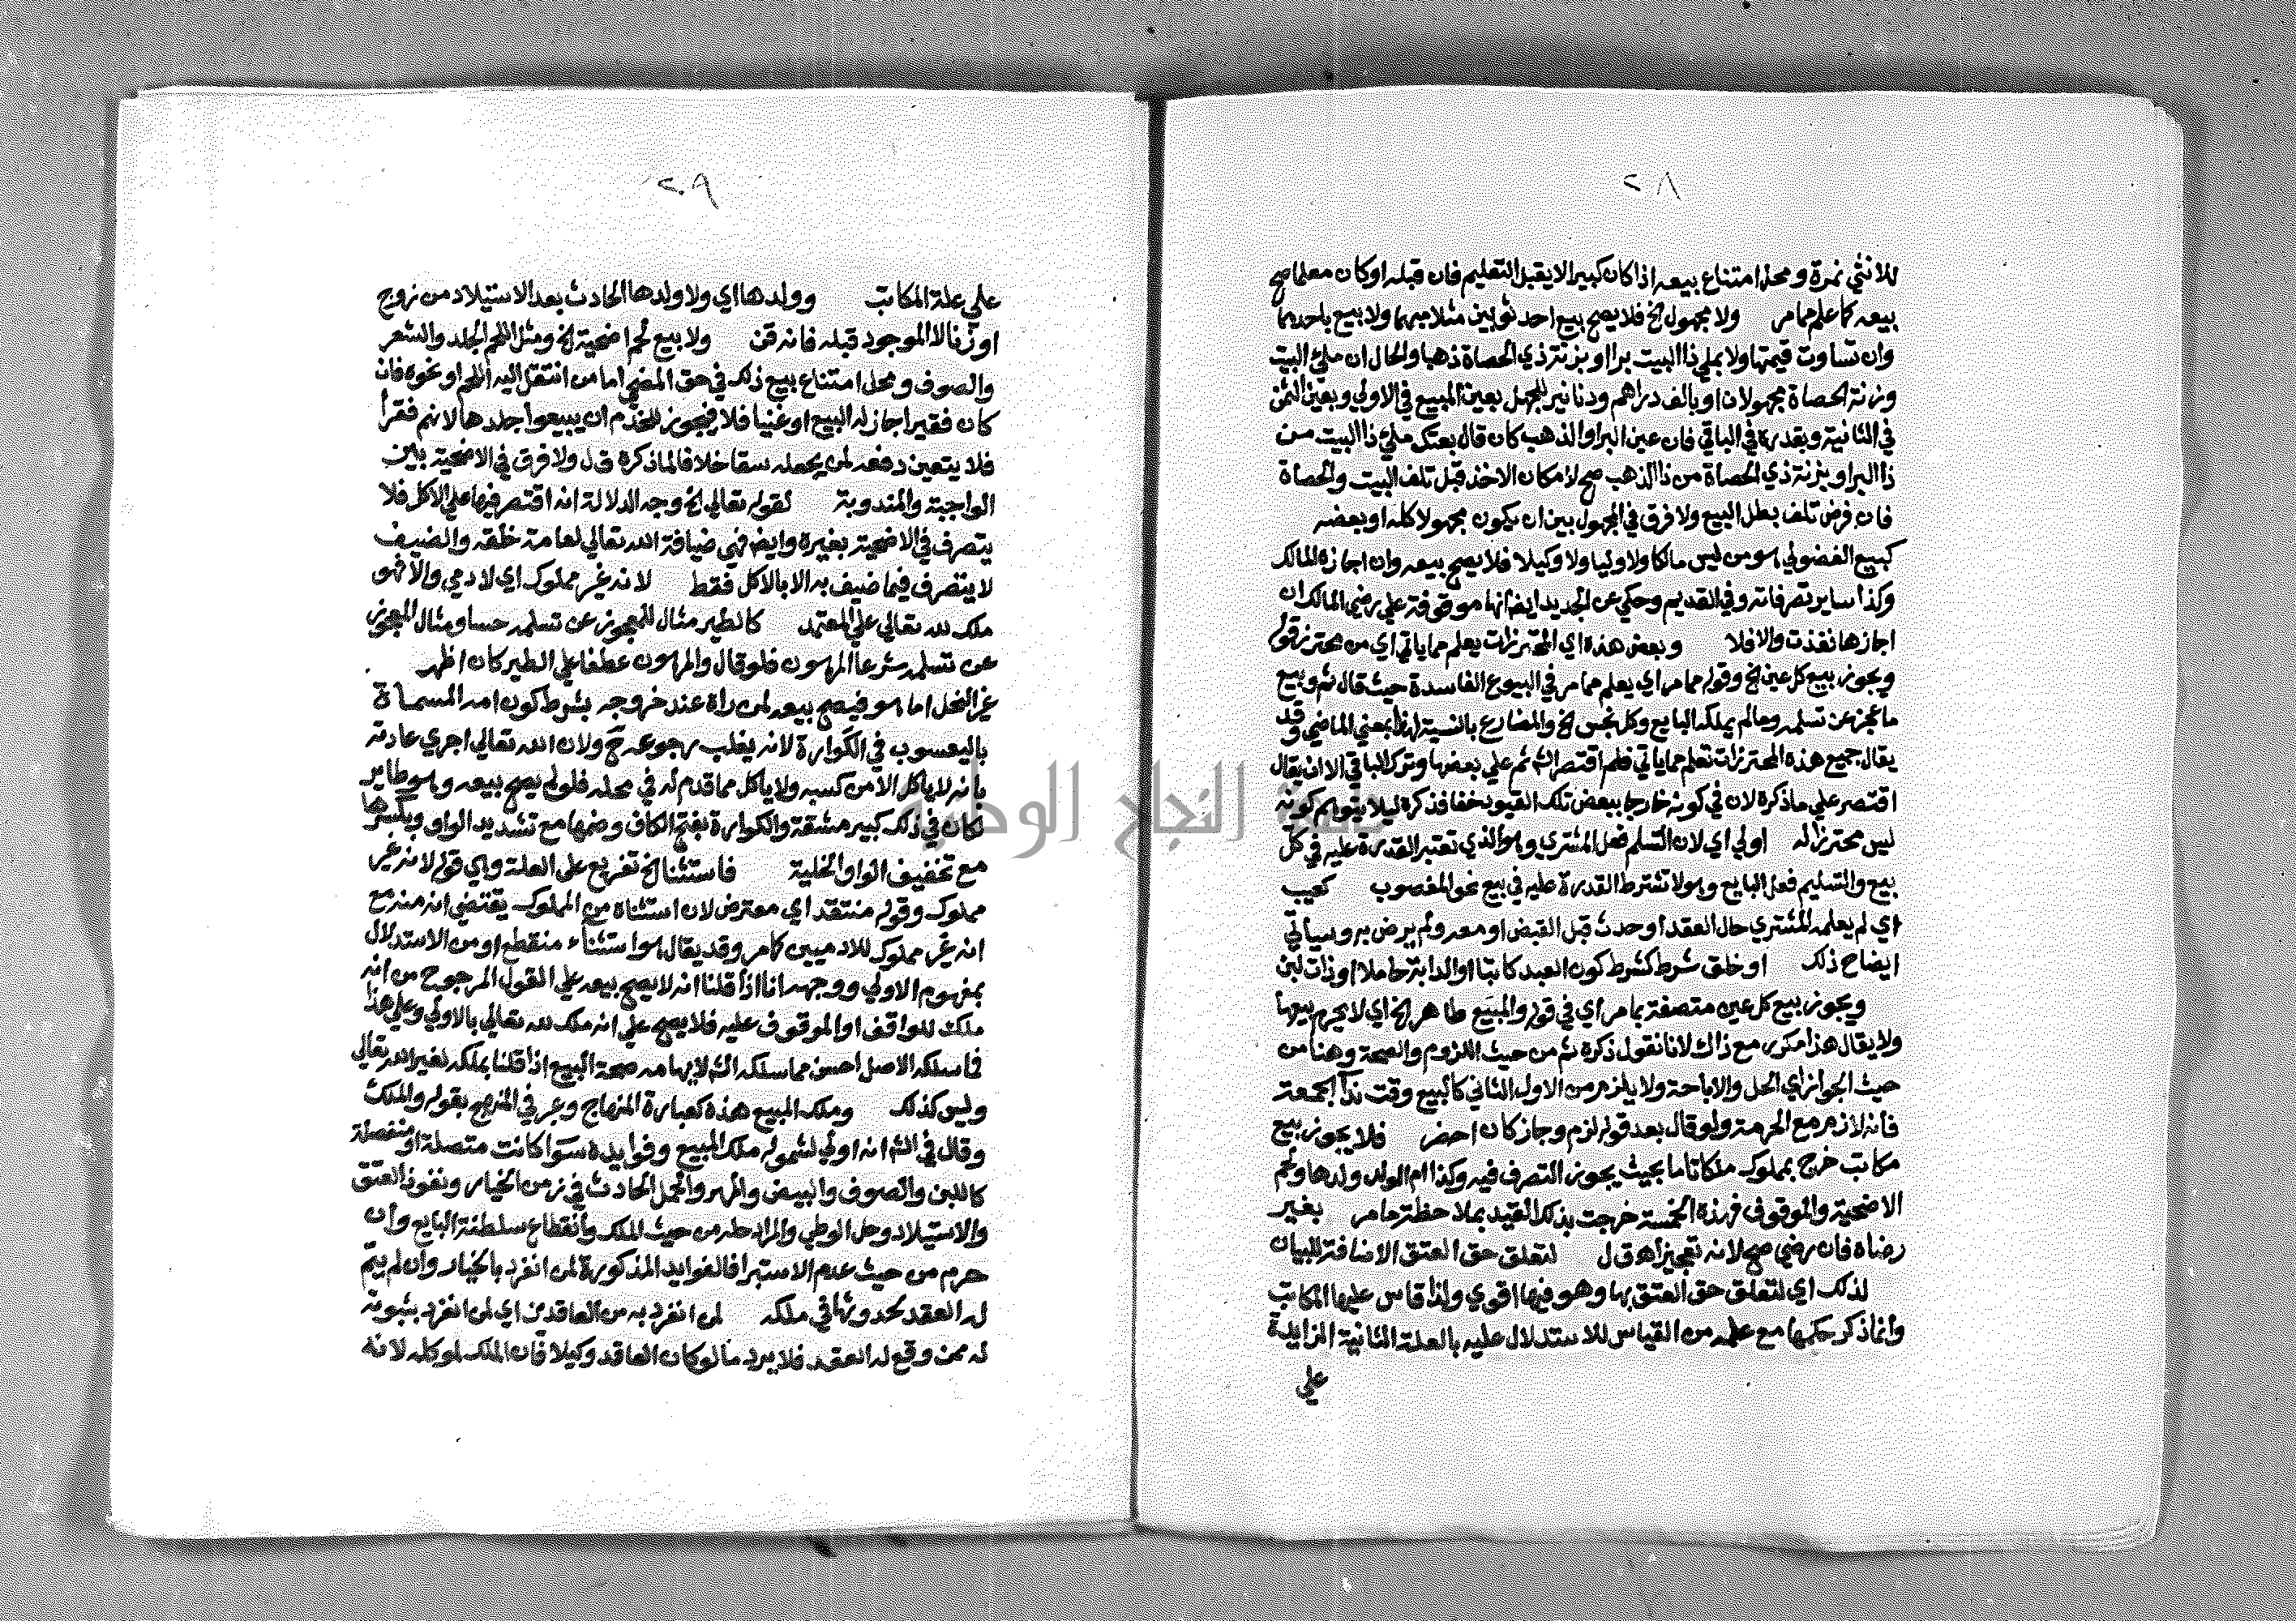 ٢٨
للانثي نمرة ومحل امتناع بيعه اذا كان كبيرا لا يقبل التعليم فان قبله او كان معلما صح
بيعه كما علم مما مر ولا مجهول الخ فلا يصح بيع احد ثوبين مثلا مبهما ولا بيع باحدهما
وان تساوت قيمتها ولا بملي ذا البيت برا او بزنة ذي الحصاة ذهبا والحال ان ملئ البيت
وزنة الحصاة مجهولان او بالف دراهم ودنانير للجهل بعين المبيع في الاولي وبعين الثمن
في الثانية وبقدره في الباقي فان عين البر او الذهب كان قال بعتك ملئ ذا البيت من
ذا البر او بزنة ذي الحصاة من ذا الذهب صح لامكان الاخذ قبل تلف البيت والحصاة
فان فرض تلف بطل البيع ولا فرق في المجهول بين ان يكون مجهولا كله او بعضه
كبيع الفضولي هو من ليس مالكا ولا وليا ولا وكيلا فلا يصح بيعه وان اجازه المالك
وكذا ساير تصرفاته وفي القديم وحكي عن الجديد ايضا انها موقوفة علي رضي المالك ان
اجازها نفذت والا فلا وبعض هذه اي المحترزات يعلم مما ياتي اي من محترز قوله
ويجوز بيع كل عين الخ وقوله مما مر اي يعلم مما مر في البيوع الفاسدة حيث قال ثم وبيع
ما عجز عن تسلمه وما لم يملكه البايع وكل نجس الخ والمضارع بالنسبة لهذا بمعني الماضي وقد
يقال جميع هذه المحترزات تعلم مما ياتي فلم اقتصر الش ثم علي بعضها وترك الباقي الا ان يقال
اقتصر علي ما ذكره لان في كونه خارجا ببعض تلك القيود خفا فذكره ليلا يتوهم كونه
ليس محترزا له اولي اي لان التسلم فعل المشتري وهو الذي تعتبر القدرة عليه في كل
بيع والتسليم فعل البايع وهو لا تشترط القدرة عليه في بيع نحو المغصوب كعيب
اي لم يعلمه المشتري حال العقد او حدث قبل القبض او معه ولم يرض به وسياتي
ايضاح ذلك او خلف شرط كشرط كون العبد كاتبا او الدابة حاملا او ذات لبن
ويجوز بيع كل عين متصفة بما مر اي في قوله والمبيع طاهر الخ اي لا يحرم بيعها
ولا يقال هذا مكرر مع ذاك لانا نقول ذكره ثم من حيث اللزوم والصحة وهنا من
حيث الجواز اي الحل والاباحة ولا يلزم من الاول الثاني كالبيع وقت ندا الجمعة
فانه لازم مع الحرمة ولو قال بعد قوله لزم وجاز كان احضر فلا يجوز بيع
مكاتب خرج بمملوك ملكا تاما بحيث يجوز التصرف فيه وكذا ام الولد وولدها ولحم
الاضحية والموقوف فهذه الخمسة خرجت بذلك القيد بملاحظة ما مر بغير
رضاه فان رضي صح لانه تعجيز اه ق ل لتعلق حق العتق الاضافة للبيان
لذلك اي لتعلق حق العتق بها وهو فيها اقوي ولذا قاس عليها المكاتب
وانما ذكر حكمها مع علمه من القياس للاستدلال عليه بالعلة الثانية الزايدة
علي
٢٩
علي علة المكاتب وولدها اي ولا ولدها الحادث بعد الاستيلاد من زوج
او زنا لا الموجود قبله فانه قن ولا بيع لحم اضحية الخ ومثل اللحم الجلد والشعر
والصوف ومحل امتناع بيع ذلك في حق المضحي اما من انتقل اليه اللحم او نحوه فان
كان فقيرا جاز له البيع او غنيا فلا فيجوز للخدم ان يبيعوا جلدها لانهم فقرا
فلا يتعين دفعه لمن يجعله سقا خلافا لما ذكره ق ل ولا فرق في الاضحية بين
الواجبة والمندوبة لقوله تعالي الخ وجه الدلالة انه اقتصر فيها علي الاكل فلا
يتصرف في الاضحية بغيره وايضا فهي ضيافة الله تعالي لعامة خلقه والضيف
لا يتصرف فيما ضيف به الا بالاكل فقط لانه غير مملوك اي لادمي والا فهو
ملك لله تعالي علي المعتمد كالطير مثال للمعجوز عن تسلمه حسا ومثال المعجوز
عن تسلمه شرعا المرهون فلو قال والمرهون عطفا علي الطير كان اظهر
غير النحل اما هو فيصح بيعه لمن راه عند خروجه بشرط كون امه المسماة
باليعسوب في الكوارة لانه يغلب رجوعه ح ولان الله تعالي اجري عادته
بانه لا ياكل الا من كسبه ولا ياكل مما قدم له في محله فلو لم يصح بيعه وهو طاير
لكان في ذلك كبير مشقة والكوارة بفتح الكاف وضمها مع تشديد الواو وبكسرها
مع تخفيف الواو الخلية فاستثنا الخ تفريع علي العلة واي قوله لانه غير
مملوك وقوله منتقد اي معترض لان استثناه من المملوك يقتضي انه مندرج
انه غير مملوك للادميين كما مر وقد يقال هو استثناء منقطع او من الاستدلال
بمفهوم الاولي ووجهه انا اذا قلنا انه لا يصح بيعه علي القول المرجوح من انه
ملك للواقف او الموقوف عليه فلا يصح علي انه ملك لله تعالي بالاولي وعلي هذا
فما سلكه الاصل احسن مما سلكه الش لايهامه صحة البيع اذا قلنا بملكه لغير الله تعالي
وليس كذلك وملك المبيع هذه كعبارة المنهاج وعبر في المنهج بقوله والملك
وقال في الش انه اولي لشموله ملك المبيع وفوايده سوا كانت متصلة او منفصلة
كاللبن والصوف والبيض والمهر والحمل الحادث في زمن الخيار ونفوذ العتق
والاستيلاد وحل الوطي والمراد حله من حيث الملك وانقطاع سلطنة البايع وان
حرم من حيث عدم الاستبرا فالفوايد المذكورة لمن انفرد بالخيار وان لم يتم
له العقد لحدوثها في ملكه لمن انفرد به من العاقدين اي لمن انفرد بثبوته
له ممن وقع له العقد فلا يرد ما لو كان العاقد وكيلا فان الملك لموكله لانه
جامعة النجاح الوطنية